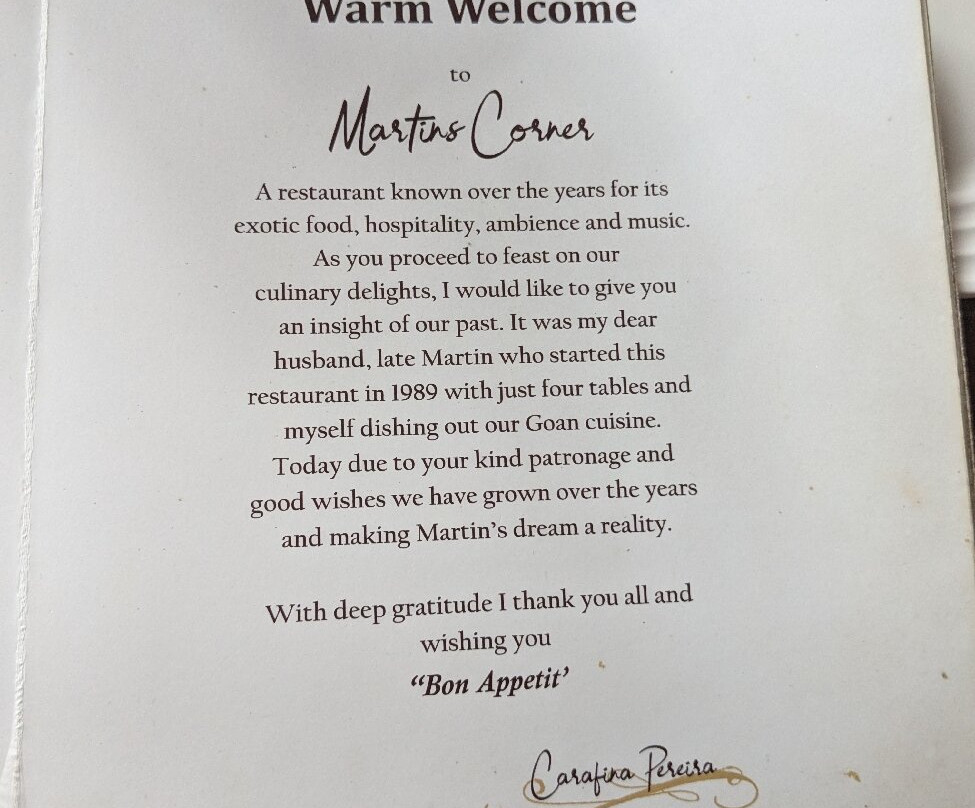 Warm Welcome
to
Martins Corner
A restaurant known over the years for its
exotic food, hospitality, ambience and music.
As you proceed to feast on our
culinary delights, I would like to give you
an insight of our past. It was my dear
husband, late Martin who started this
restaurant in 1989 with just four tables and
myself dishing out our Goan cuisine.
Today due to your kind patronage and
good wishes we have grown over the years
and making Martin's dream a reality.
With deep gratitude I thank you all and
wishing you
“Bon Appetit’
Carafina Pereira